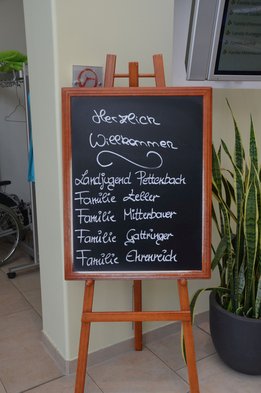 Herzlich
Willkommen
Landjugend Pettenbach
Familie Zeller
Familie Mitterbauer
Familie Gattringer
Familie Ehrenreich